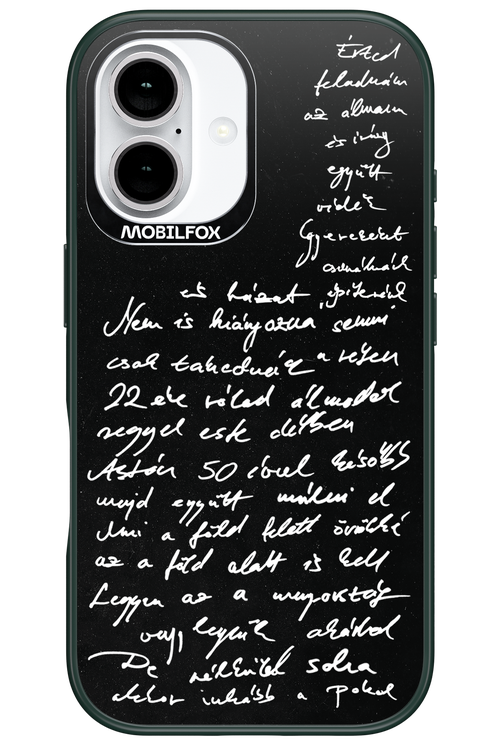 MOBILFOX
Érted
feladnám
az álmaim
és így
együtt
vidék
Gyereket
csinálnánk
és házat építenénk
Nem is hiányozna semmi
csak takednék a részem
22 éve rólad álmodok
reggel este délben
Aztán 50 évvel később
majd együtt múlni el
Ami a föld felett örökké
az a föld alatt is kell
Legyen az a mennyország
vagy legyünk akárhol
De nélküled soha
akkor inkább a pokol